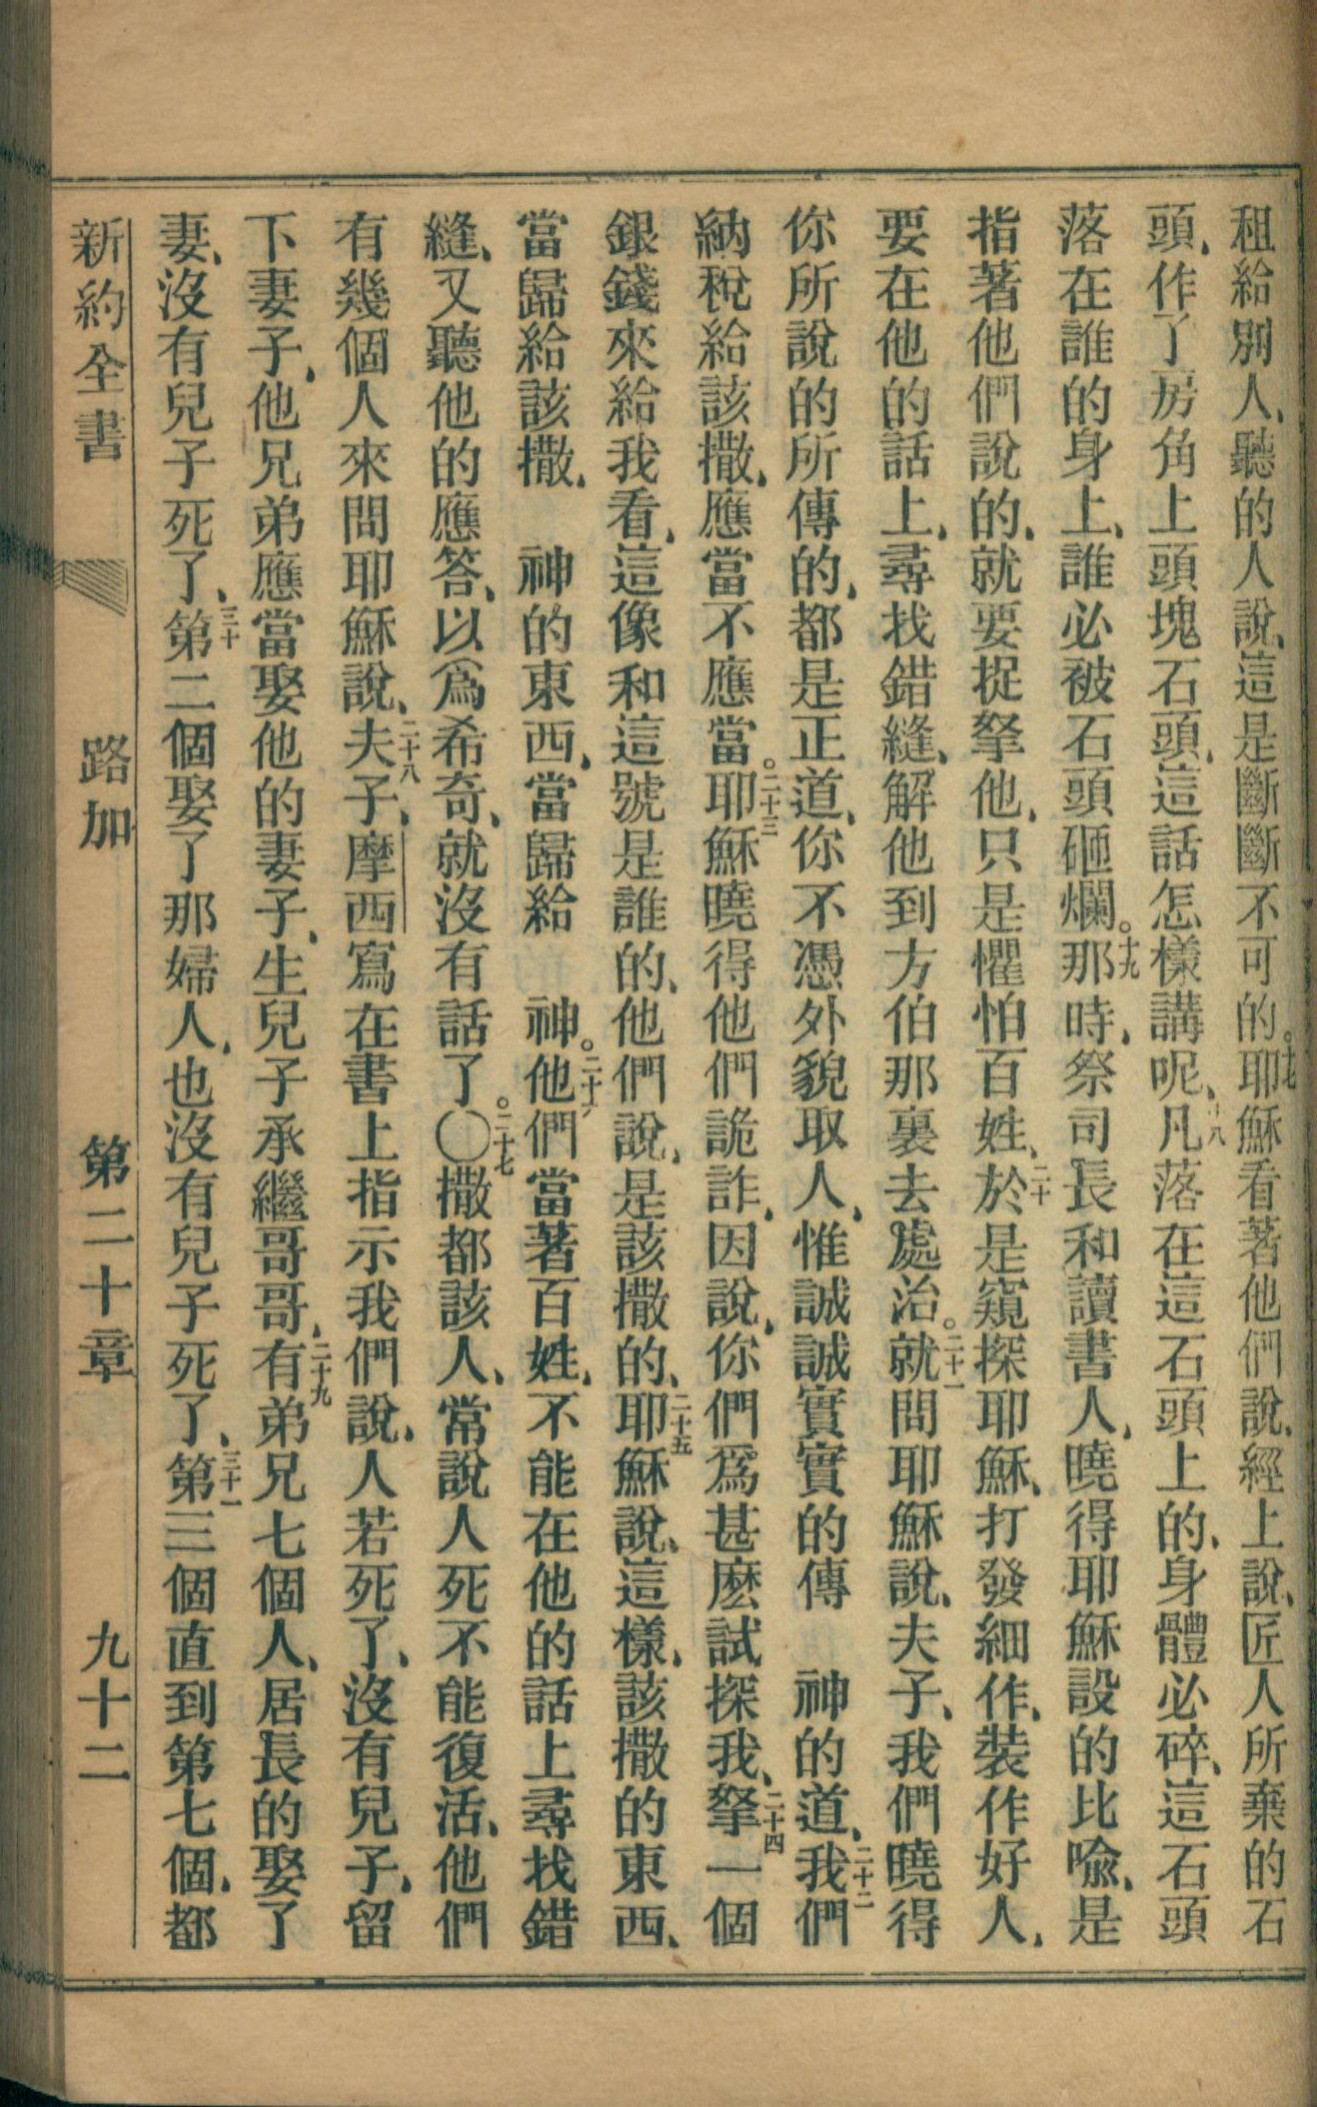 租給別人、聽的人說、這是斷斷不可的。十七耶穌看著他們說、經上說、匠人所棄的石
頭、作了房角上頭塊石頭、這話怎樣講呢、十八凡落在這石頭上的、身體必碎、這石頭
落在誰的身上、誰必被石頭砸爛。十九那時、祭司長和讀書人、曉得耶穌設的比喩、是
指著他們說的、就要捉拏他、只是懼怕百姓、二十於是窺探耶穌、打發細作、裝作好人、
要在他的話上、尋找錯縫、解他到方伯那裏去處治。二十一就問耶穌說、夫子、我們曉得
你所說的所傳的、都是正道、你不憑外貌取人、惟誠誠實實的傳　神的道、二十二我們
納稅給該撒、應當不應當。二十三耶穌曉得他們詭詐、因說、你們爲甚麽試探我、二十四拏一個
銀錢來給我看、這像和這號是誰的、他們說、是該撒的、二十五耶穌說、這樣、該撒的東西、
當歸給該撒、　神的東西、當歸給　神。二十六他們當著百姓、不能在他的話上尋找錯
縫、又聽他的應答、以爲希奇、就沒有話了。〇二十七撒都該人、常說人死不能復活、他們
有幾個人來問耶穌說、二十八夫子、摩西寫在書上指示我們說、人若死了、沒有兒子、留
下妻子、他兄弟應當娶他的妻子、生兒子承繼哥哥、二十九有弟兄七個人、居長的娶了
妻、沒有兒子死了、三十第二個娶了那婦人、也沒有兒子死了、三十一第三個直到第七個、都
新約全書　路加　第二十章　九十二